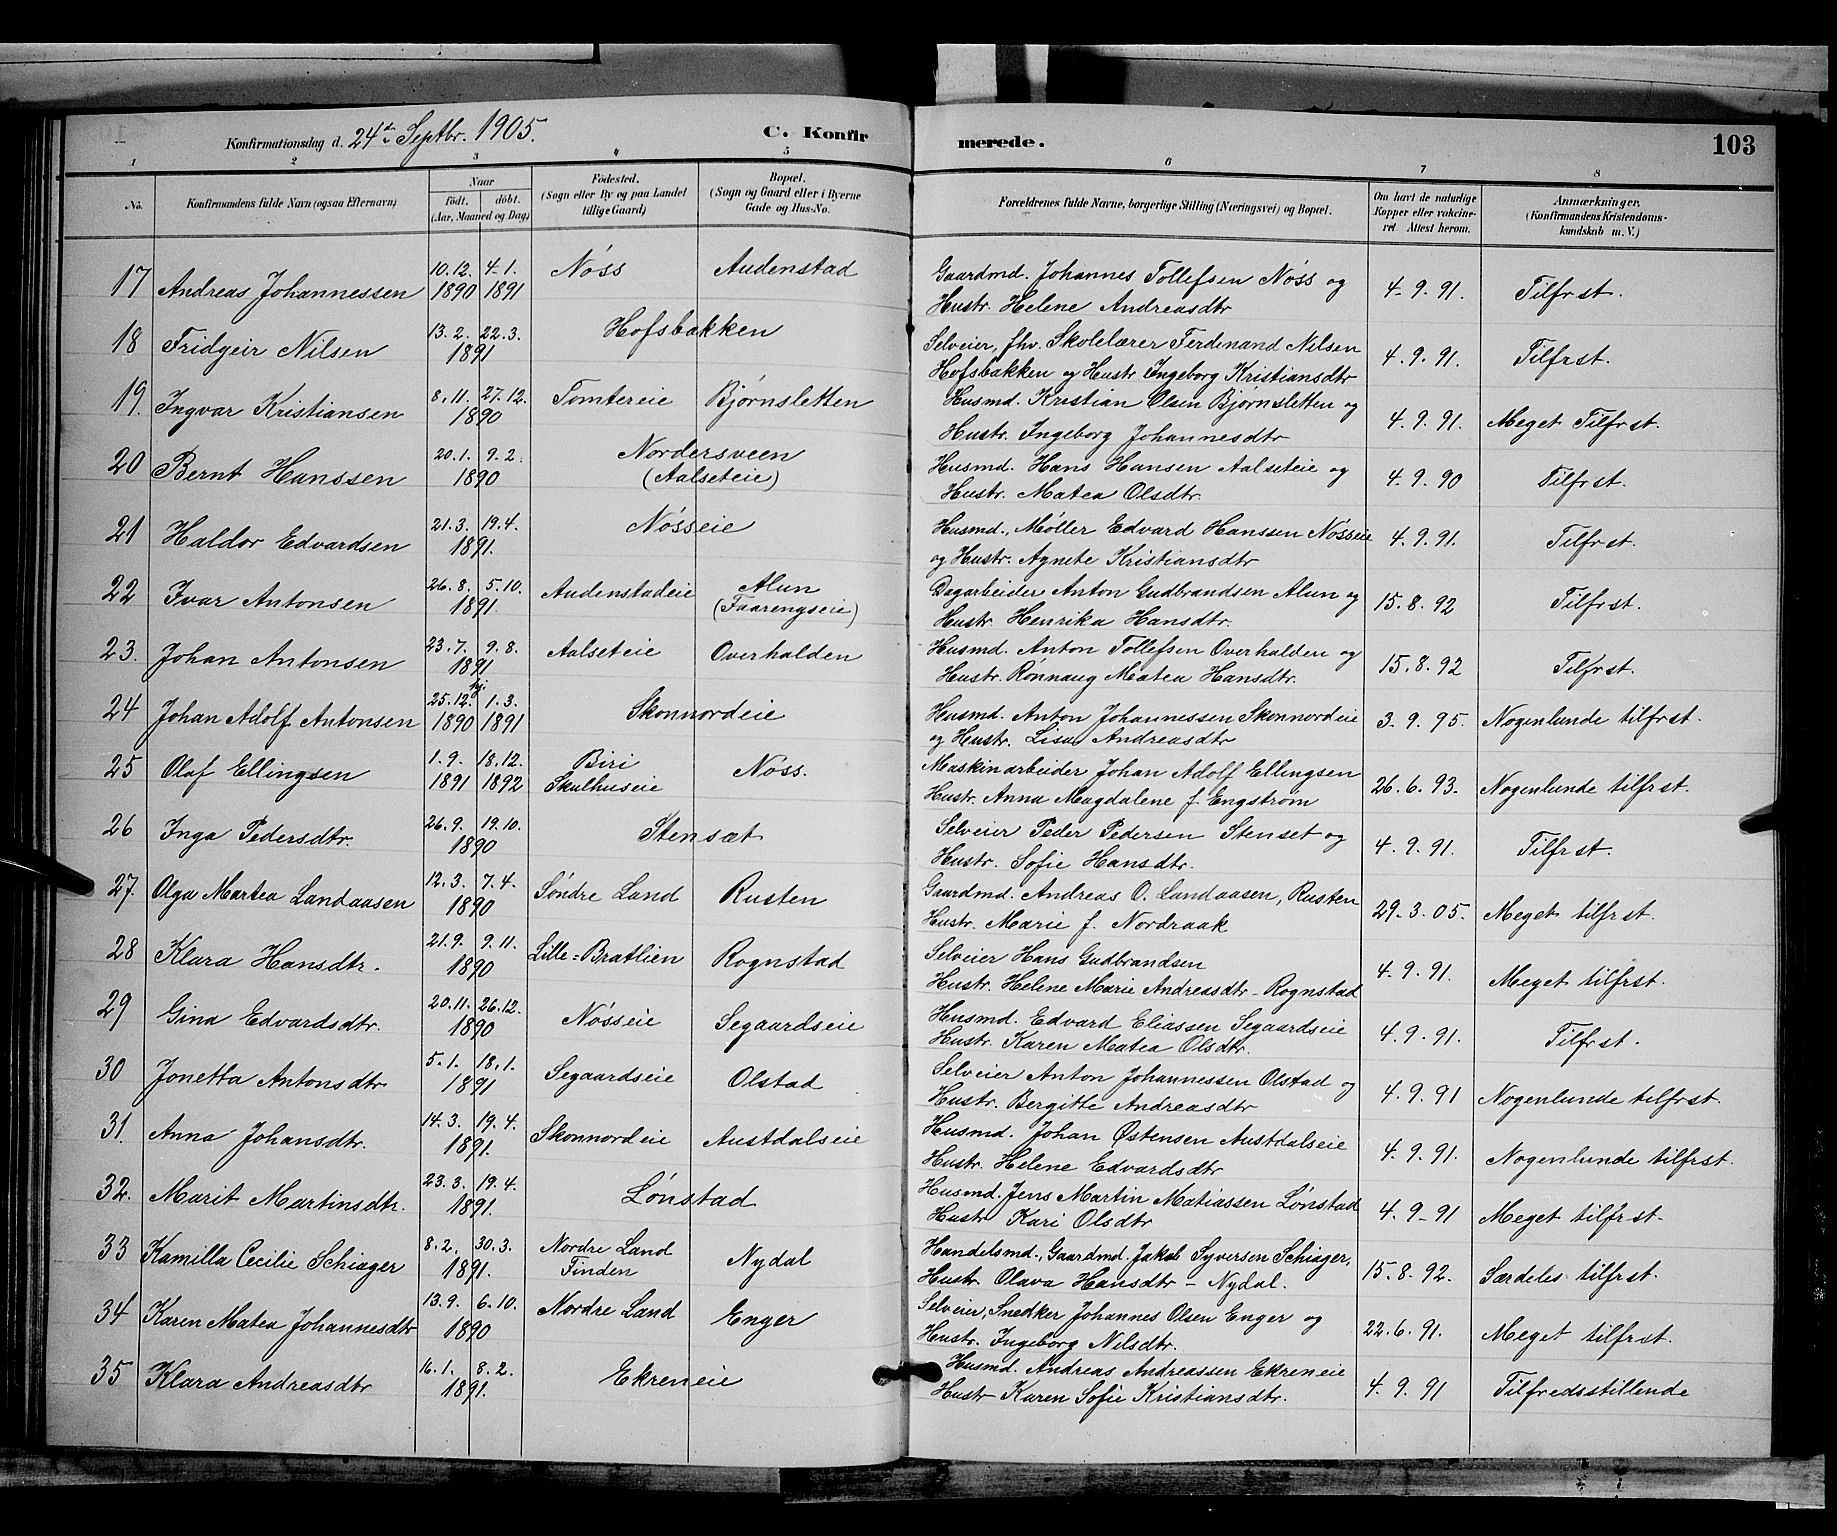 Konfirmationsdag d. 24de Septbr. 1905. C. Konfirmerede. 103
1 2 3 4 5 6 7 8
No. Konfirmandens fulde Navn (ogsaa Efternavn) Naar født. døbt. (Aar, Maaned og Dag) Fødested. (Sogn eller By og paa Landet tillige Gaard) Bopæl. (Sogn og Gaard eller i Byerne Gade og Hus-No. Forældrenes fulde Navne, borgerlige Stilling (Næringsvei) og Bopæl. Om havt de naturlige Kopper eller vakcineret. Attest herom. Anmærkninger. (Konfirmandens Kristendomskundskab m. V.)
17 Andreas Johannessen 10.12. 1890 4-1. 1891 Nøss Audenstad Gaardmd. Johannes Tollefsen Nøss og
Hustr. Helene Andreasdtr 4-9.91. Tilfrst.
18 Fridgeir Nilsen 13.2. 22.3. 1891 Hofsbakken Selveier, fhv. Skolelærer Ferdinand Nilsen
Hofsbakken og Hustr Ingeborg Kristiansdtr 4.9.91. Tilfrst.
19. Ingvar Kristiansen 8.11. 27.12. 1890 Tomtereie Bjørnsletten Husmd. Kristian Olsen Bjørnsletten og
Hustr. Ingeborg Johannesdtr 4.9.91. Meget Tilfrst.
20 Bernt Hanssen 20.1. 9.2. 1890 Nordersveen (Aalseteie) Husmd. Hans Hansen Aalseteie og
Hustr. Matea Olsdtr. 4.9.90 Tilfrst.
21 Haldor Edvardsen 21.3. 19.4. 1891. Nøsseie Husmd., Møller Edvard Hanssen Nøsseie
og Hustr. Agnete Kristiansdtr 4.9.91. Tilfrst.
22 Ivar Antonsen 26.8. 5.10. 1891 Audenstadeie Alun (Faarengseie) Dagarbeider Anton Gudbrandsen Alun og
Hustr. Henrika Hansdtr. 15.8.92 Tilfrst.
23. Johan Antonsen 23.7. 9.8. 1891 Aalseteie Overhalden Husmd. Anton Tollefsen Overhalden og
Hustr. Rønnaug Matea Hansdtr. 15.8.92 Tilfrst.
24 Johan Adolf Antonsen 25.12. 1890 hj. 1.3. 1891 Skonnordeie Husmd. Anton Johannessen Skonnordeie
og Hustr. Lisa Andreasdtr 3.9.95. Nogenlunde tilfrst.
25 Olaf Ellingsen 1.9. 1891 18.12. 1892 Biri Skulhuseie Nøss. Maskinarbeider Johan Adolf Ellingsen
Hustr. Anna Magdalene f. Engstrøm 26.6.93. Nogenlunde tilfrst.
26 Inga Pedersdtr. 26.9. 19.10. 1890 Stensæt Selveier Peder Pedersen Stenset og
Hustr. Sofie Hansdtr. 4.9.91. Tilfrst.
27. Olga Martea Landaasen 12.3. 7.4. 1890 Søndre Land Rusten Gaardmd. Andreas O. Landaasen, Rusten
Hustr. Marie f. Nordraak 29-3.05. Meget tilfrst.
28 Klara Hansdtr. 21.9. 9.11. 1890 Lille-Bratlien Rognstad Selveier Hans Gudbrandsen
Hustr. Helene Marie Andreasdtr - Rognstad 4.9.91. Meget tilfrst.
29 Gina Edvardsdtr. 20.11. 26.12. 1890 Nøsseie Segaardseie Husmd. Edvard Eliassen Segaardseie
Hustr. Karen Matea Olsdtr. 4.9.91. Tilfrst.
30 Jonetta Antonsdtr 5.1. 18.1. 1891 Segaardseie Olstad Selveier Anton Johannessen Olstad og
Hustr. Bergitte Andreasdtr 4.9.91 Nogenlunde tilfrst.
31. Anna Johansdtr. 14.3. 19.4. 1891. Skonnordeie Austdalseie Husmd. Johan Østensen Austdalseie
Hustr. Helene Edvardsdtr 4.9.91. Nogenlunde tilfrst.
32. Marit Martinsdtr. 23.3. 19.4. 1891. Lønstad Husmd. Jens Martin Matiassen Lønstad
Hustr Kari Olsdtr 4.9-91 Meget tilfrst-
33 Kamilla Cecilie Schiager 8.2. 30.3. 1891. Nordre Land Finden Nydal Handelsmd., Gaardmd. Jakob Syversen Schiager,
Hustr. Olava Hansdtr - Nydal. 15.8.92. Særdeles tilfrst.
34 Karen Matea Johannesdtr 13.9. 6.10. 1890 Nordre Land Enger Selveier, Snedker Johannes Olsen Enger og
Hustr. Ingeborg Nilsdtr. 22.6.91. Meget tilfrst.
35 Klara Andreasdtr 16.1. 8.2. 1891. Ekreneie Husmd. Andreas Andreassen Ekreneie
Hustr Karen Sofie Kristiansdtr. 4.9.91 Tilfredsstillende